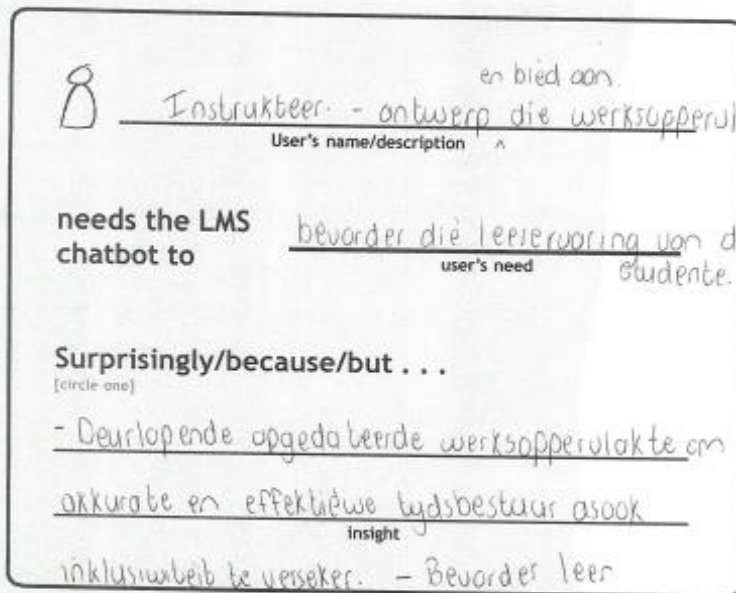 en bied aan.
Instrukteer. - ontwerp die werksoppervl
User's name/description ^
needs the LMS
chatbot to
bevorder die leerervaring van d
user's need
studente.
Surprisingly/because/but . . .
[circle one]
- Deurlopende opgedateerde werksoppervlakte om
akkurate en effektiewe tydsbestuur asook
insight
inklusiwiteit te verseker. - Bevorder leer